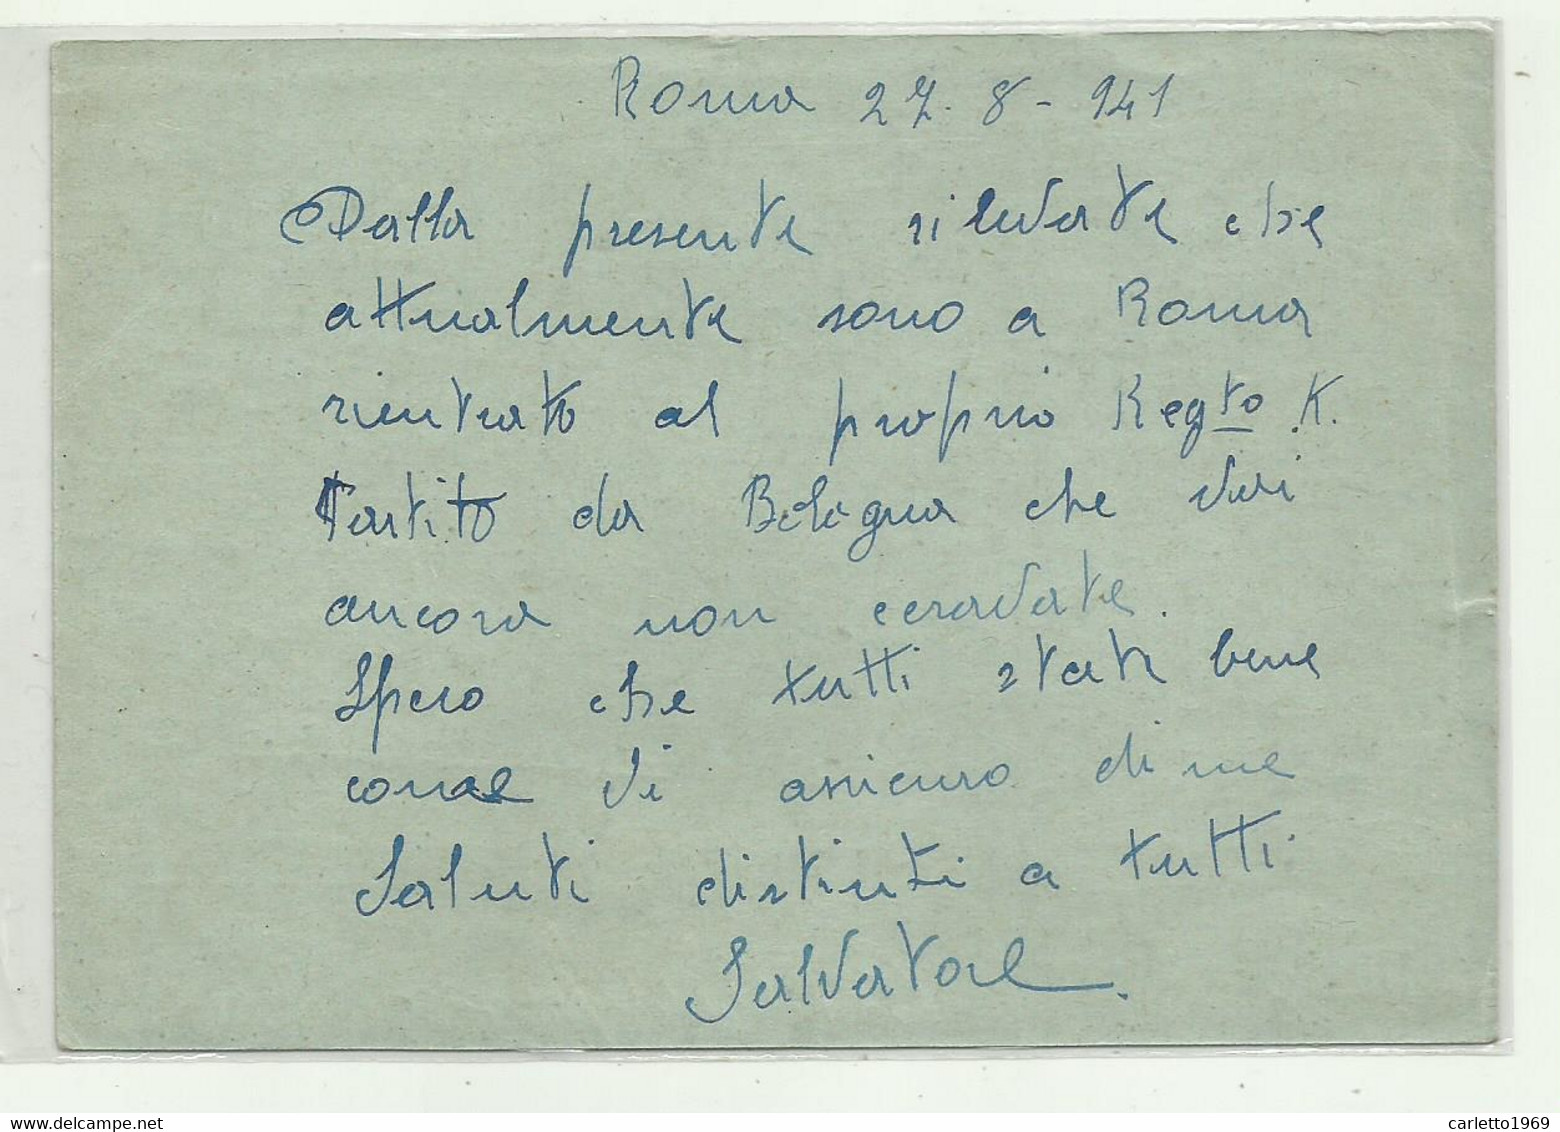 Roma 27. 8 - 941
Dalla presente rilevate che
attualmente sono a Roma
rientrato al proprio Regto K.
Partito da Bologna che
ancora non
Spero che tutti state bene
come Vi assicuro di me
Saluti distinti a tutti.
Salvatore.
carletto1969